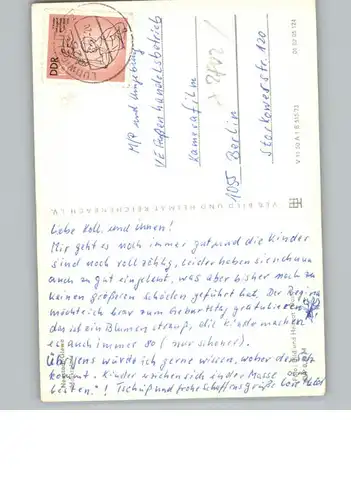 DDR
M/P und Umgebung
VE Großhandelsbetrieb
Kamerafilm
1055 Berlin
Storkower str. 120
V 11 50 A 1 B 515/73
01 07 05 124
VEB BILD UND HEIMAT REICHENBACH I. V.
Liebe Koll. und innen!
Mir geht es noch immer gut und die Kinder
sind noch vollzählig, leider haben sie sich nun
auch zu gut eingelebt, was aber bisher noch zu
keinen größeren Schäden geführt hat. Der Regina
möchte ich brav zum Geburtstag gratulieren
das ist ein Blumenstrauß, die Kinder machen
es auch immer so (nur schöner).
Übrigens würde ich gerne wissen, woher der Satz
kommt. „Kinder weichen sich in der Masse
besten."! Tschüß und frohe Schaffensgrüße